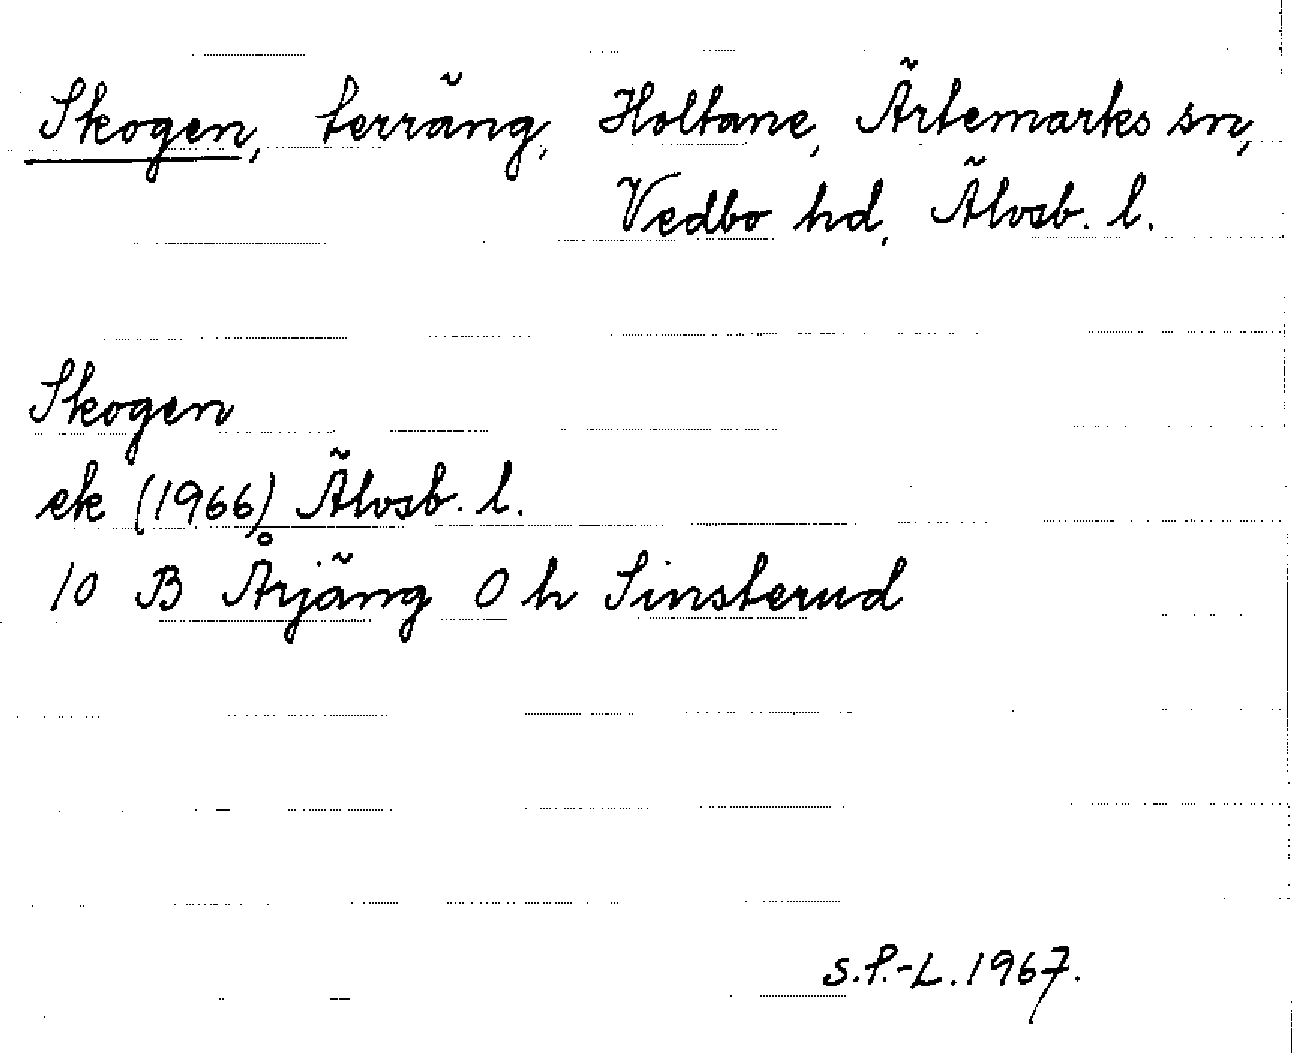 Skogen, terräng, Holtane, Ärtemarks sn,
Vedbo hd, Älvsb. l.
Skogen
ek (1966) Älvsb. l.
10 B Årjäng O h Sinsterud
S.P.-L. 1967.